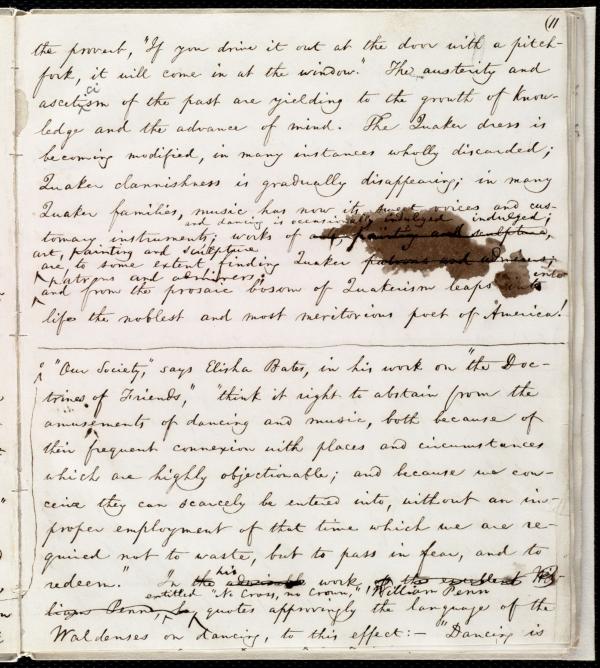 (11
the proverb, "If you drive it out at the door with a pitch-
fork, it will come in at the window." The austerity and
asceticism of the past are yielding to the growth of know-
ledge and the advance of mind. The Quaker dress is
becoming modified, in many instances wholly discarded;
Quaker clannishness is gradually disappearing; in many
Quaker families, music has now its sweet voices and cus-
and dancing is occasionally indulged indulged;
tomary instruments; works of art, painting and sculpture,
art, painting and sculpture
are to some extent finding Quaker patrons and admirers;
patrons and admirers;
and from the prosaic bosom of Quakerism leaps into
life the noblest and most meritorious poet of America!
"Our Society," says Elisha Bates, in his work on "the Doc-
trines of Friends," "think it right to abstain from the
amusements of dancing and music, both because of
their frequent connexion with places and circumstances
which are highly objectionable; and because we con-
ceive they can scarcely be entered into, without an im-
proper employment of that time which we are re-
quired not to waste, but to pass in fear, and to
redeem." In the his admirable work of the excellent Wil-
entitled "No Cross, no Crown," William Penn
liam Penn, he quotes approvingly the language of the
Waldenses on dancing, to this effect:— "Dancing is